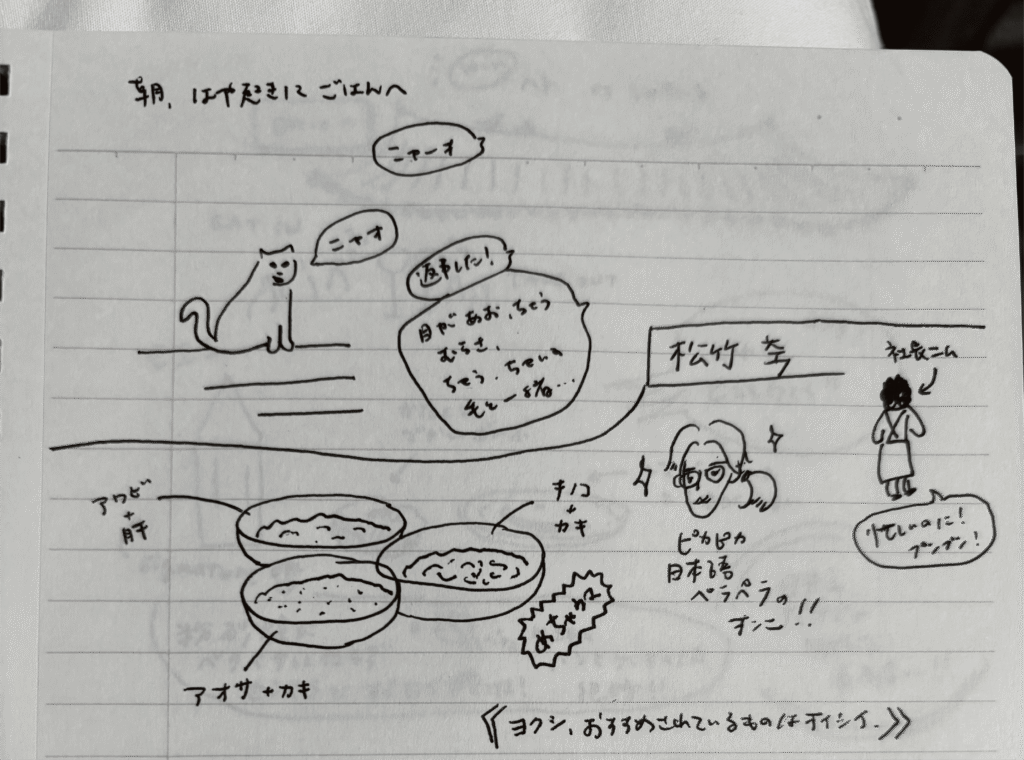 朝、はや起きしてごはんへ
ニャーオ
ニャオ
返事した!
目があお、ちゃう
むらさ、
ちゃう、ちゃいの
毛と一緒…
松竹
社長ニム
忙しいのに!
プンプン!
アワビ
+
肝
キノコ
+
カキ
ピカピカ
日本語
ペラペラの
オンニ!!
めちゃウマ
アオサ+カキ
《ヨクシ、おすすめされているものはオイシイ.》